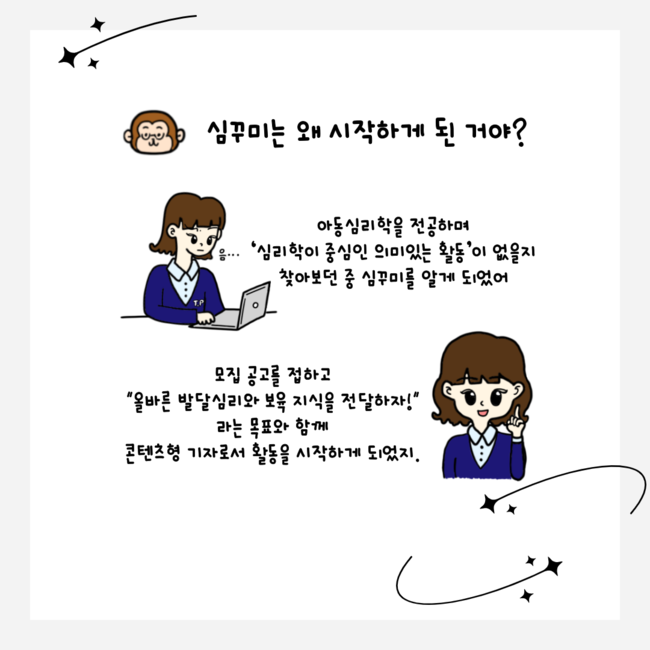 심꾸미는 왜 시작하게 된 거야?
아동심리학을 전공하며
음... '심리학이 중심인 의미있는 활동'이 없을지
찾아보던 중 심꾸미를 알게 되었어
T.P
모집 공고를 접하고
"올바른 발달심리와 보육 지식을 전달하자!"
라는 목표와 함께
콘텐츠형 기자로서 활동을 시작하게 되었지.